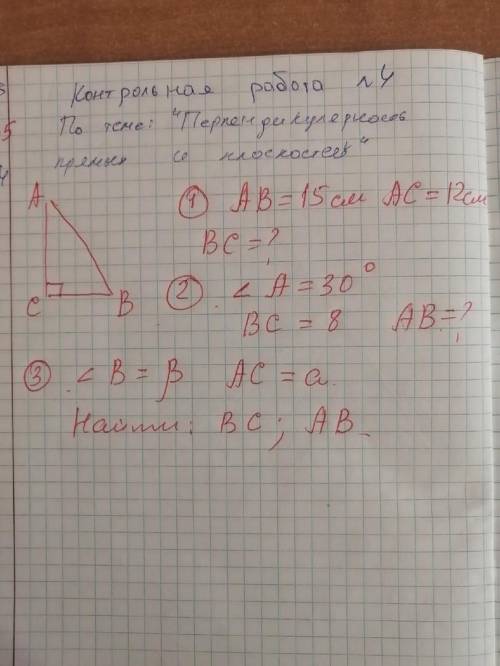 Контрольная работа №4
По теме: "Перпендикулярность
прямых и плоскостей"
A
① AB = 15 см AC = 12 см
BC = ?
C B
② < A = 30°
BC = 8 AB = ?
③ < B = β AC = a.
Найти: BC ; AB